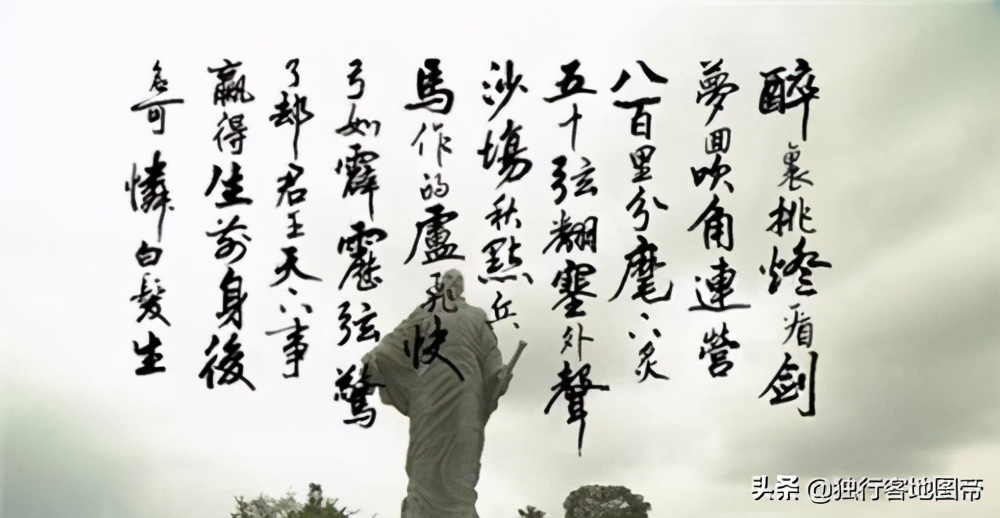 醉裏挑燈看劍
夢回吹角連營
八百里分麾下炙
五十弦翻塞外聲
沙場秋點兵
馬作的盧飛快
弓如霹靂弦驚
了却君王天下事
贏得生前身後名
可憐白髮生
头条 @独行客地图帝